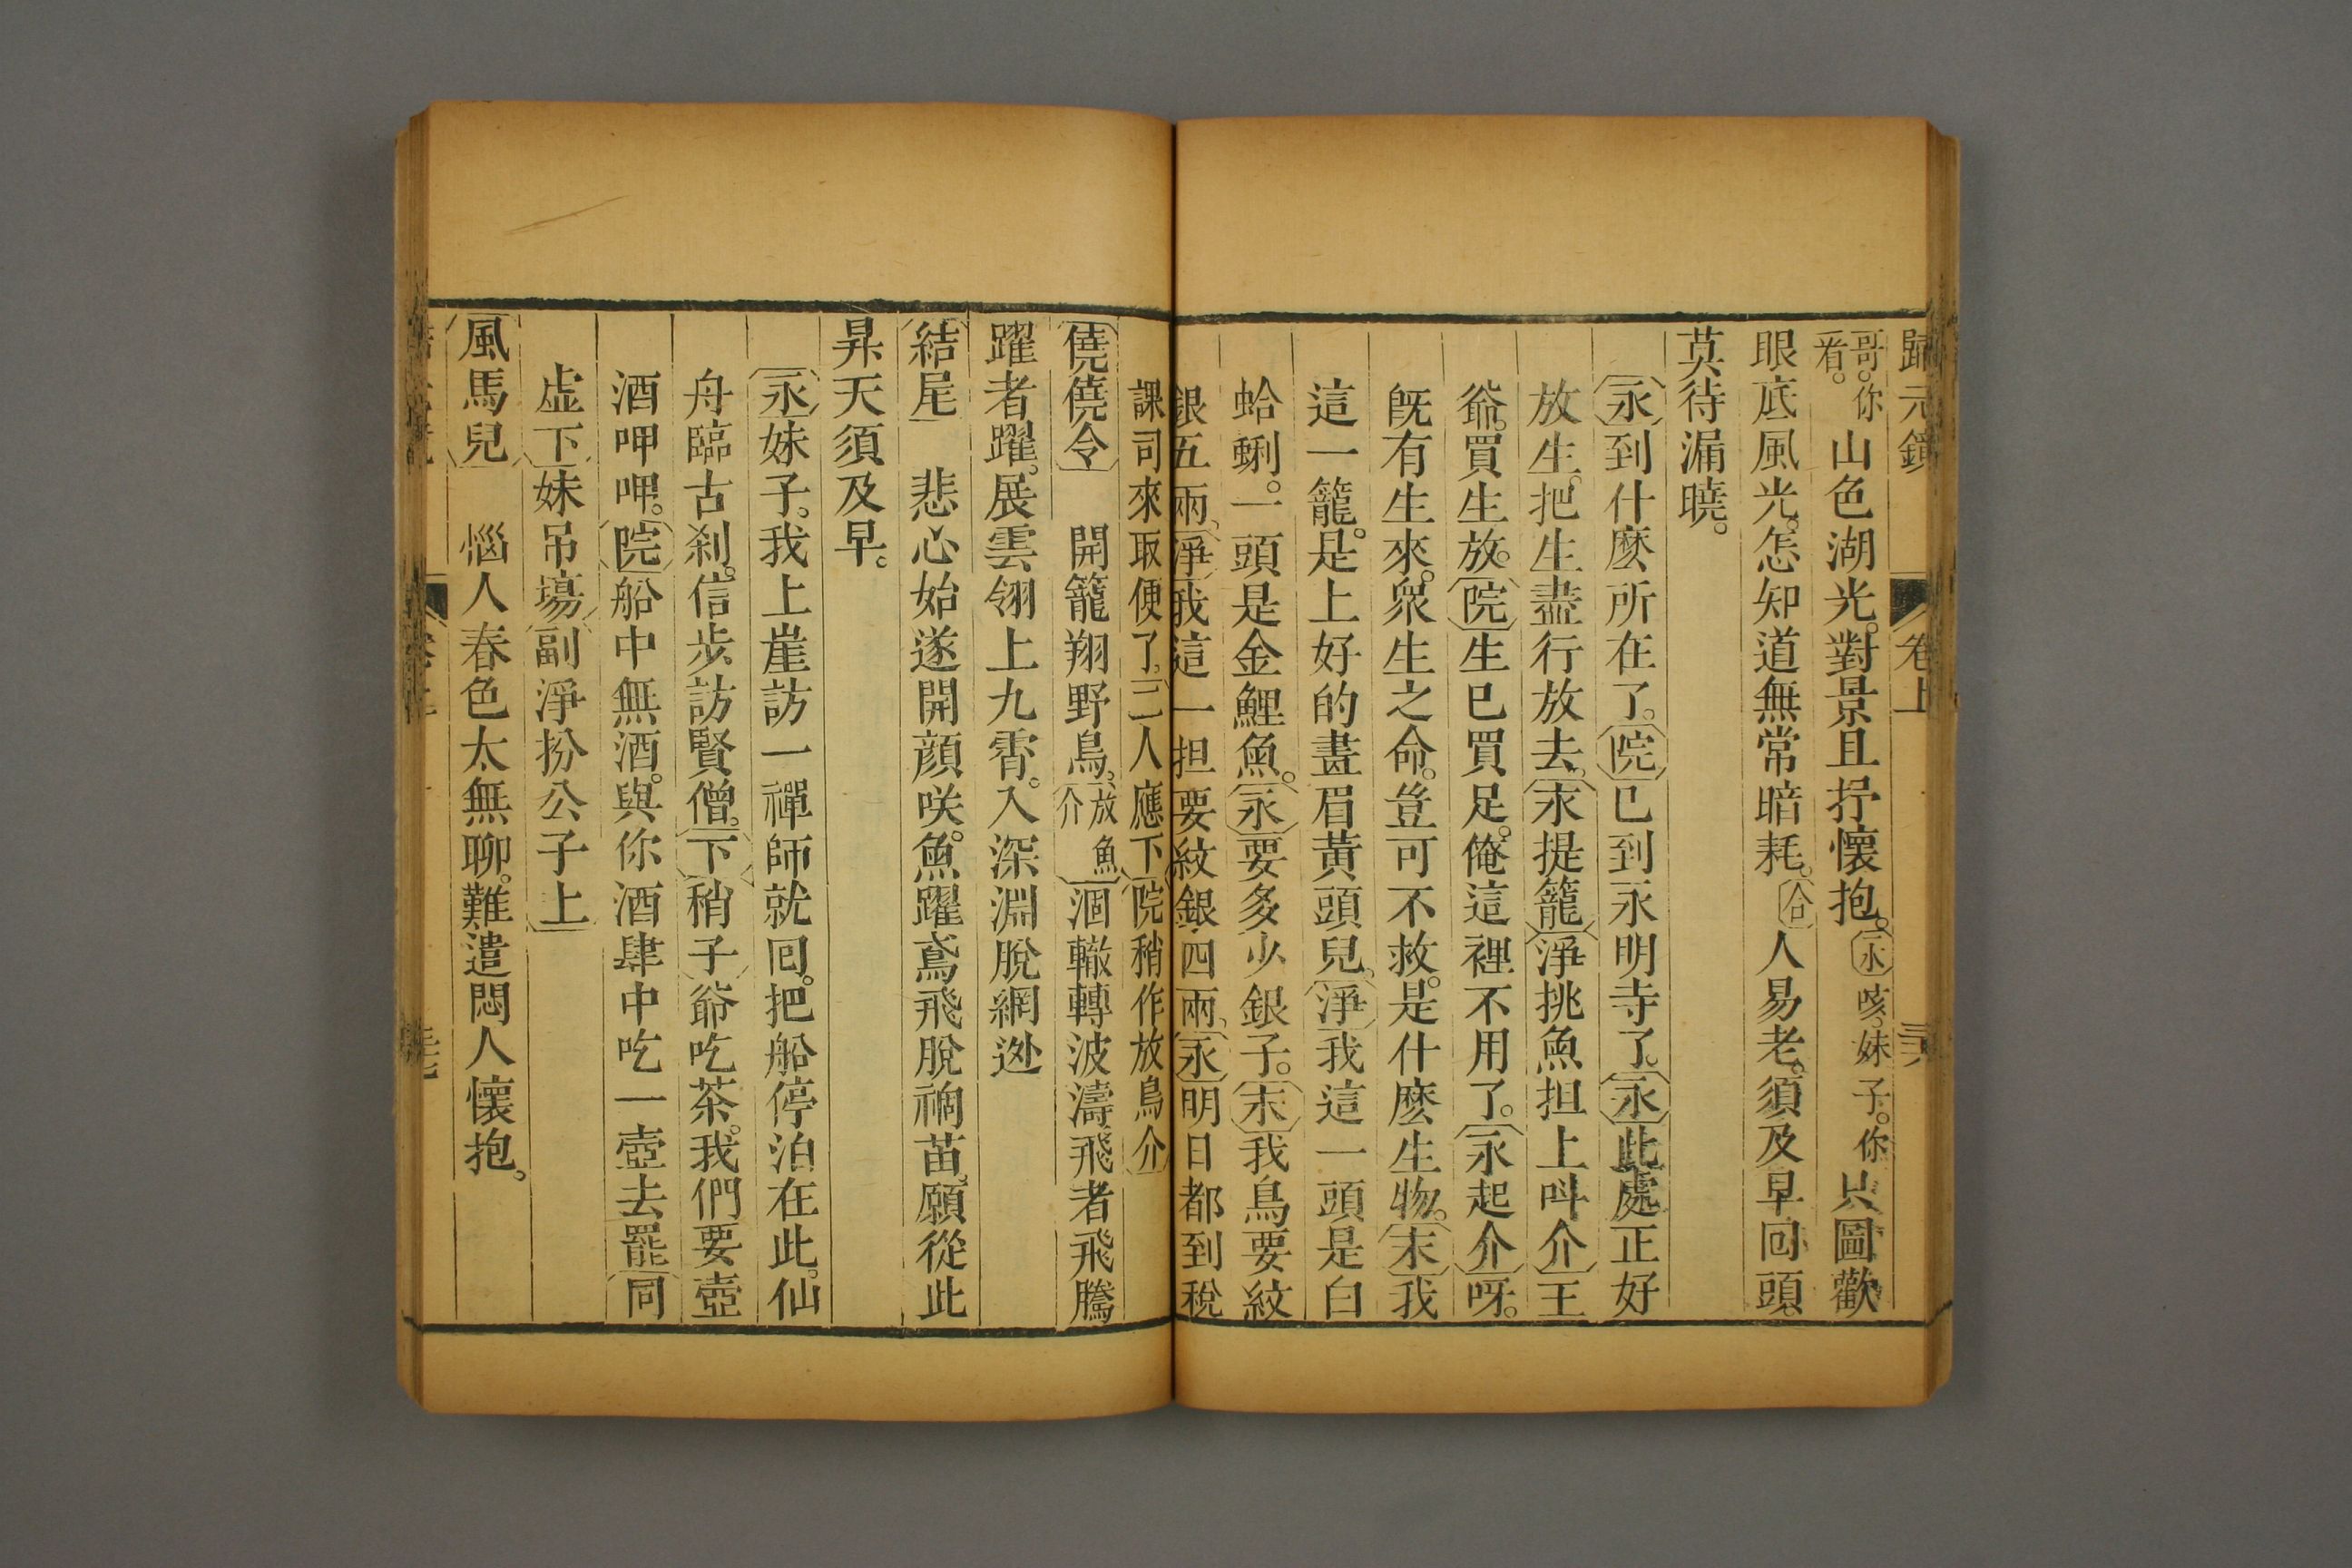 歸元鏡 卷上
哥。你看。山色湖光。對景且抒懷抱。永咳。妹子。你只圖歡
眼底風光。怎知道無常暗耗。合人易老。須及早回頭。
莫待漏曉。
永到什麼所在了。院已到永明寺了。永此處正好
放生。把生盡行放去。末提籠淨挑魚担上呌介王
爺。買生放。院生已買足。俺這裡不用了。永起介呀。
旣有生來。衆生之命。豈可不救。是什麽生物。末我
這一籠。是上好的畫眉黃頭兒。淨我這一頭是白
蛤蜊。一頭是金鯉魚。永要多少銀子。末我鳥要紋
銀五兩、淨我這一担要紋銀四兩、永明日都到稅
課司來取便了。二人應下院稍作放鳥介
僥僥令 開籠翔野鳥。放魚介涸轍轉波濤飛者飛騰
躍者躍。展雲翎上九霄。入深淵脫網逊
結尾 悲心始遂開顔咲。魚躍鳶飛脫禍苗。願從此
昇天須及早。
永妹子。我上崖訪一禪師就囘。把船停泊在此。仙
舟臨古刹。信步訪賢僧。下稍子爺吃茶。我們要壺
酒呷呷。院船中無酒。與你酒肆中吃一壺去罷同
虛下妹吊塲副淨扮公子上
風馬兒 惱人春色太無聊。難遣悶人懷抱。